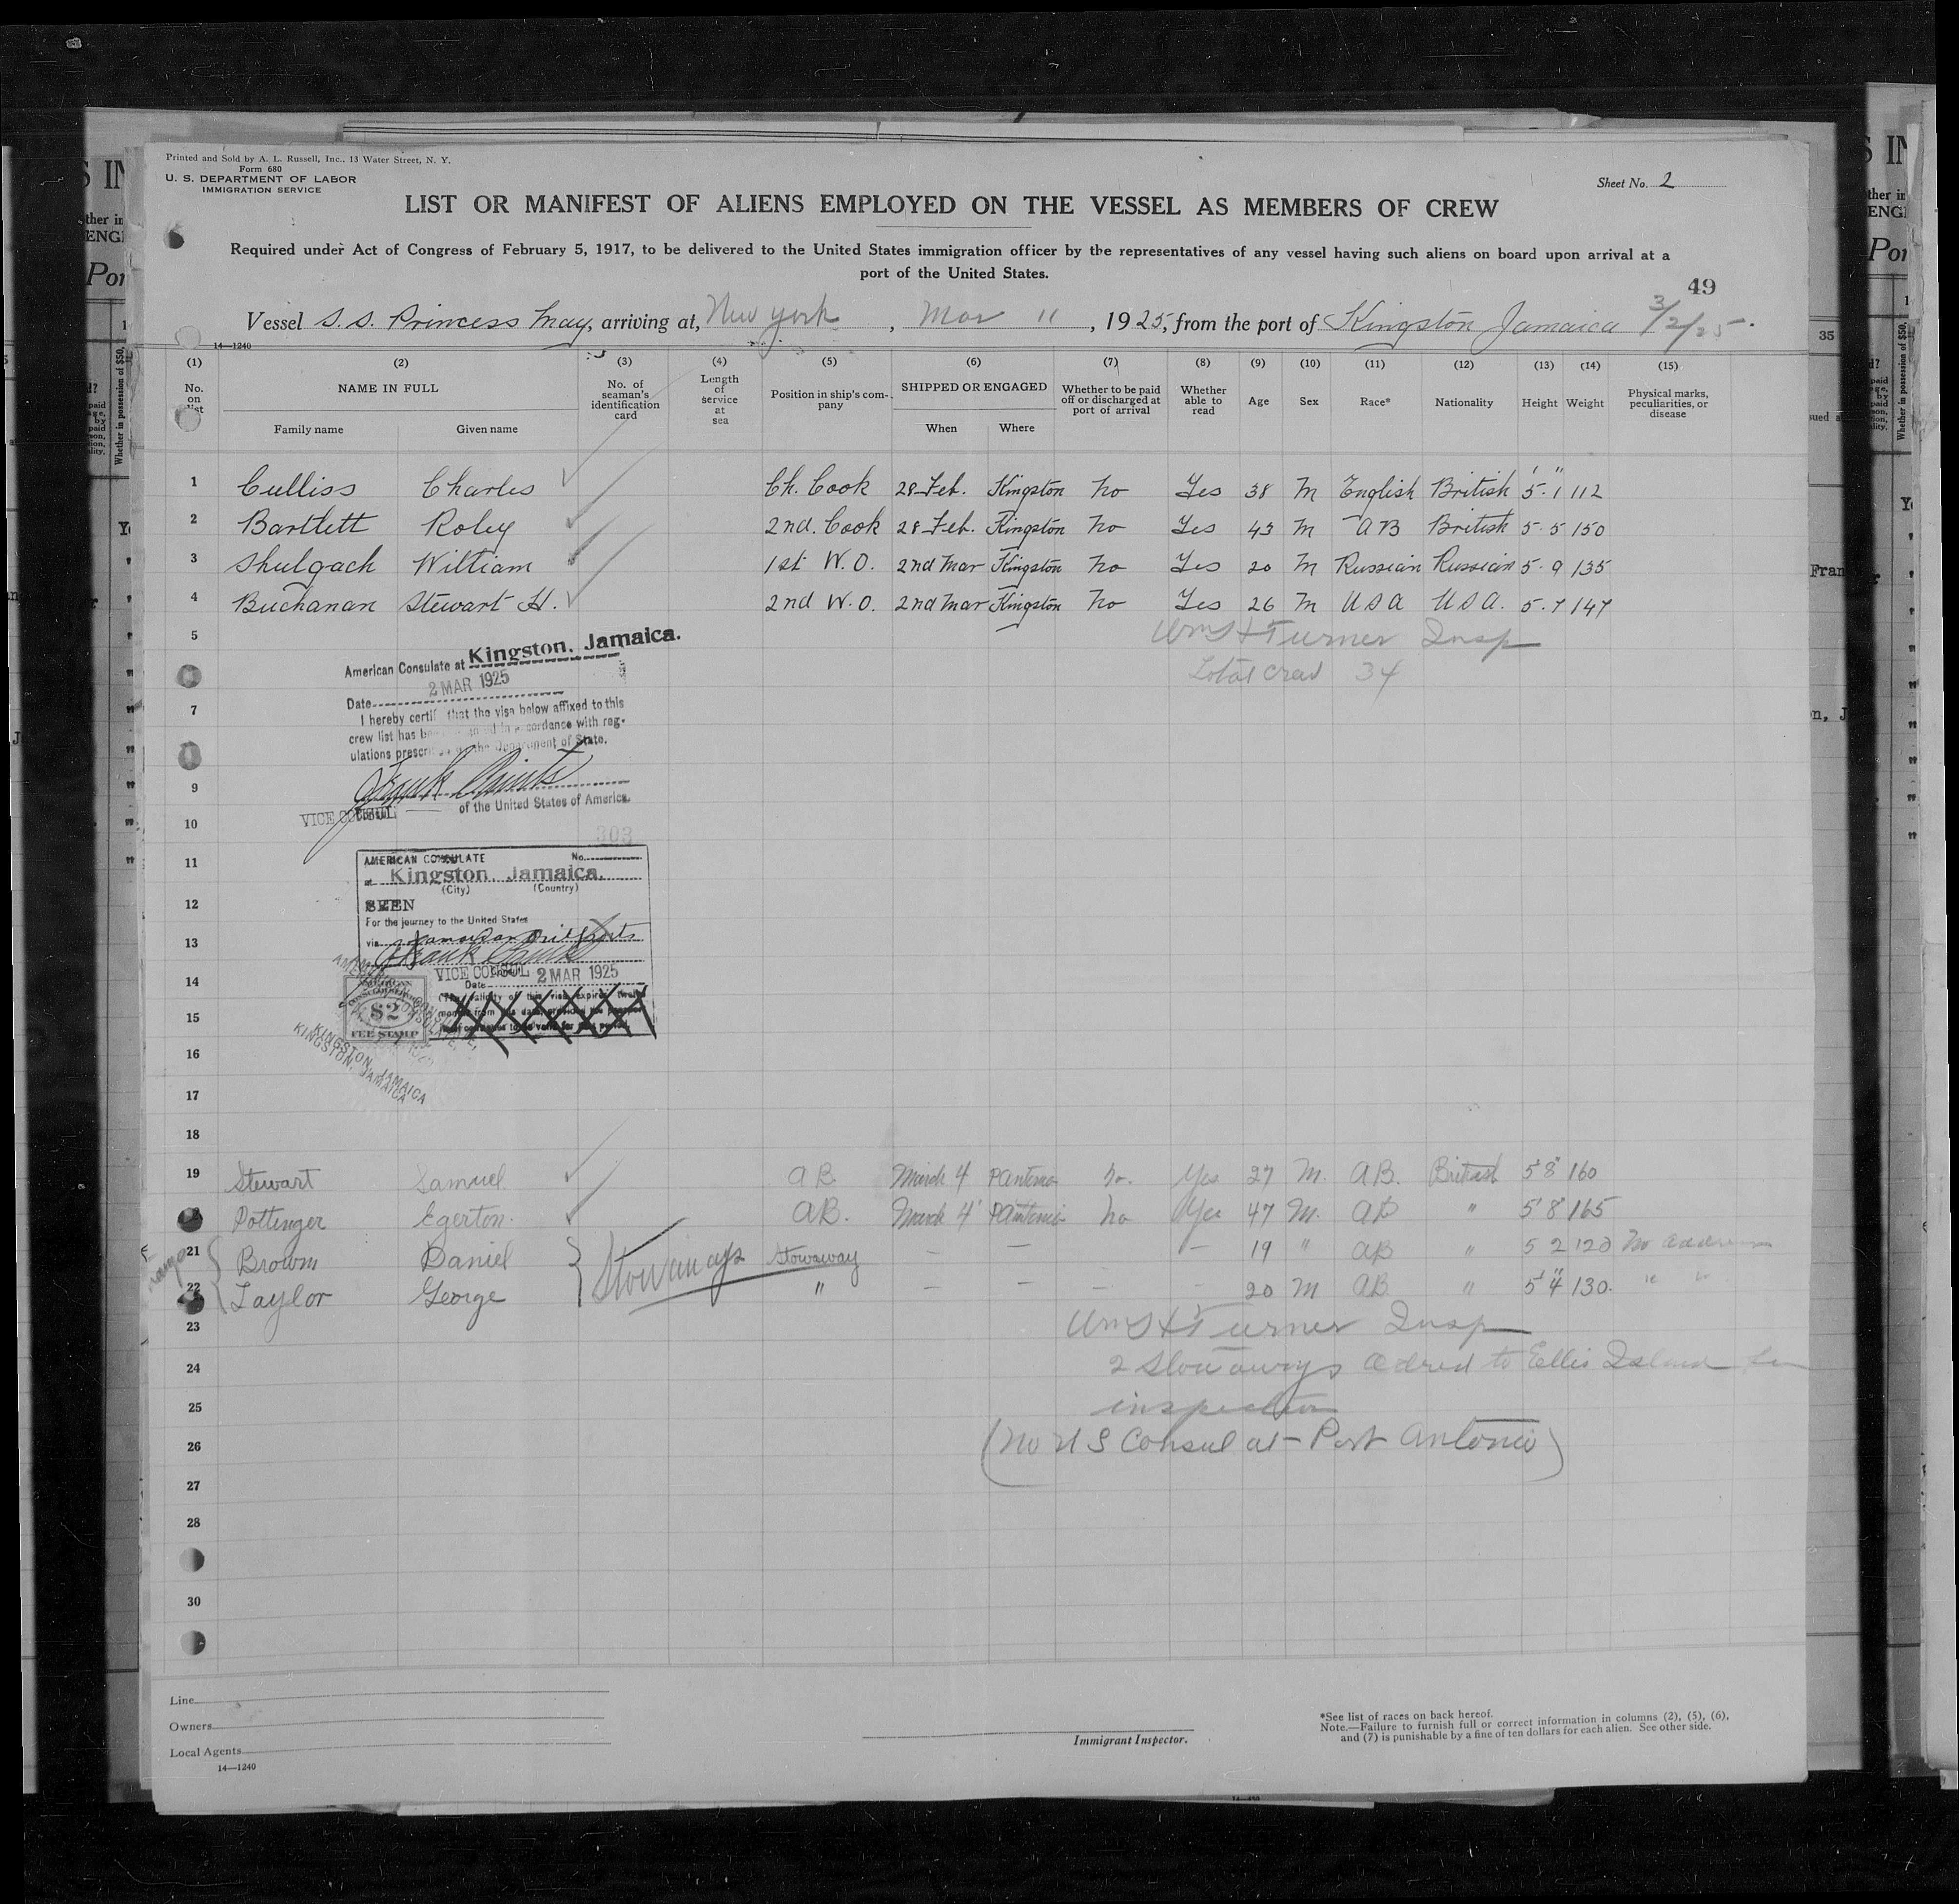 Printed and Sold by A. L. Russell, Inc., 13 Water Street, N. Y.
Form 680
U. S. DEPARTMENT OF LABOR
IMMIGRATION SERVICE
Sheet No. 2
LIST OR MANIFEST OF ALIENS EMPLOYED ON THE VESSEL AS MEMBERS OF CREW
Required under Act of Congress of February 5, 1917, to be delivered to the United States immigration officer by the representatives of any vessel having such aliens on board upon arrival at a
port of the United States.
49
Vessel S. S. Princess May, arriving at, New York, Mar 11, 1925, from the port of Kingston Jamaica 3/2/25.
14—1240
(1) (2) (3) (4) (5) (6) (7) (8) (9) (10) (11) (12) (13) (14) (15)
No. on list NAME IN FULL Family name Given name No. of seaman's identification card Length of service at sea Position in ship's company SHIPPED OR ENGAGED When Where Whether to be paid off or discharged at port of arrival Whether able to read Age Sex Race* Nationality Height Weight Physical marks, peculiarities, or disease
1 Culliss Charles Ch. Cook 28 Feb. Kingston no Yes 38 M English British 5' 1" 112
2 Bartlett Roley 2nd. Cook 28 Feb. Kingston no Yes 43 M AB British 5. 5 150
3 Shulgach William 1st W. O. 2nd Mar Kingston no Yes 20 M Russian Russian 5. 9 135
4 Buchanan Stewart H. 2nd W. O. 2nd Mar Kingston no Yes 26 M USA USA. 5. 7 147
5 Wm H Turner Insp
Total Crew 34
American Consulate at Kingston, Jamaica.
Date 2 MAR 1925
7
I hereby certify that the visa below affixed to this
crew list has been signed in accordance with reg-
ulations prescribed by the Department of State.
9
VICE CONSUL of the United States of America.
10
303
11
AMERICAN CONSULATE No.
at Kingston, Jamaica.
(City) (Country)
12
SEEN
For the journey to the United States
13
via Jamaican
VICE CONSUL
14
Date 2 MAR 1925
AMERICAN
$2
FEE STAMP
15
16
KINGSTON, JAMAICA
KINGSTON, JAMAICA
17
18
19 Stewart Samuel AB March 4 P Antonio no. Yes 27 M. AB. British 5' 8" 160
Pottinger Egerton. AB. March 4 P Antonio no Yes 47 M. AB " 5' 8" 165
21 Brown Daniel Stowaways Stowaway — — — 19 " AB " 5 2 120 no address
22 Taylor George " — — — - 20 M AB " 5' 4" 130. " "
23 Wm H Turner Insp
24 2 Stowaways Ordered to Ellis Island for
25 inspection
26 (No U S Consul at Port Antonio)
27
28
30
Line
Owners
Local Agents
14—1240
Immigrant Inspector.
*See list of races on back hereof.
Note.—Failure to furnish full or correct information in columns (2), (5), (6),
and (7) is punishable by a fine of ten dollars for each alien. See other side.